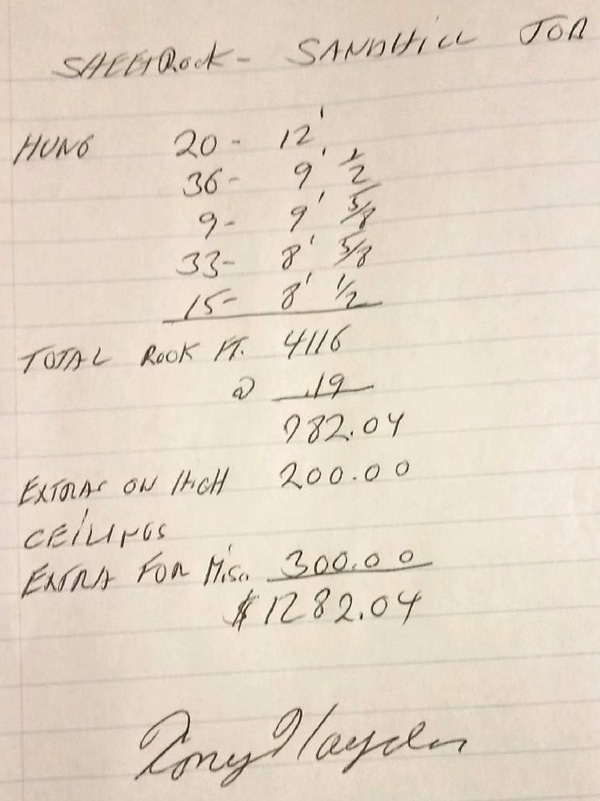 SHEETROCK - SANDHILL JOB
HUNG 20 - 12'
36 - 9' 1/2
9 - 9' 5/8
33 - 8' 5/8
15 - 8' 1/2
TOTAL ROCK FT. 4116
@ .19
782.04
EXTRAS ON HIGH 200.00
CEILINGS
EXTRA FOR Misc. 300.00
$1282.04
Tony Hayden